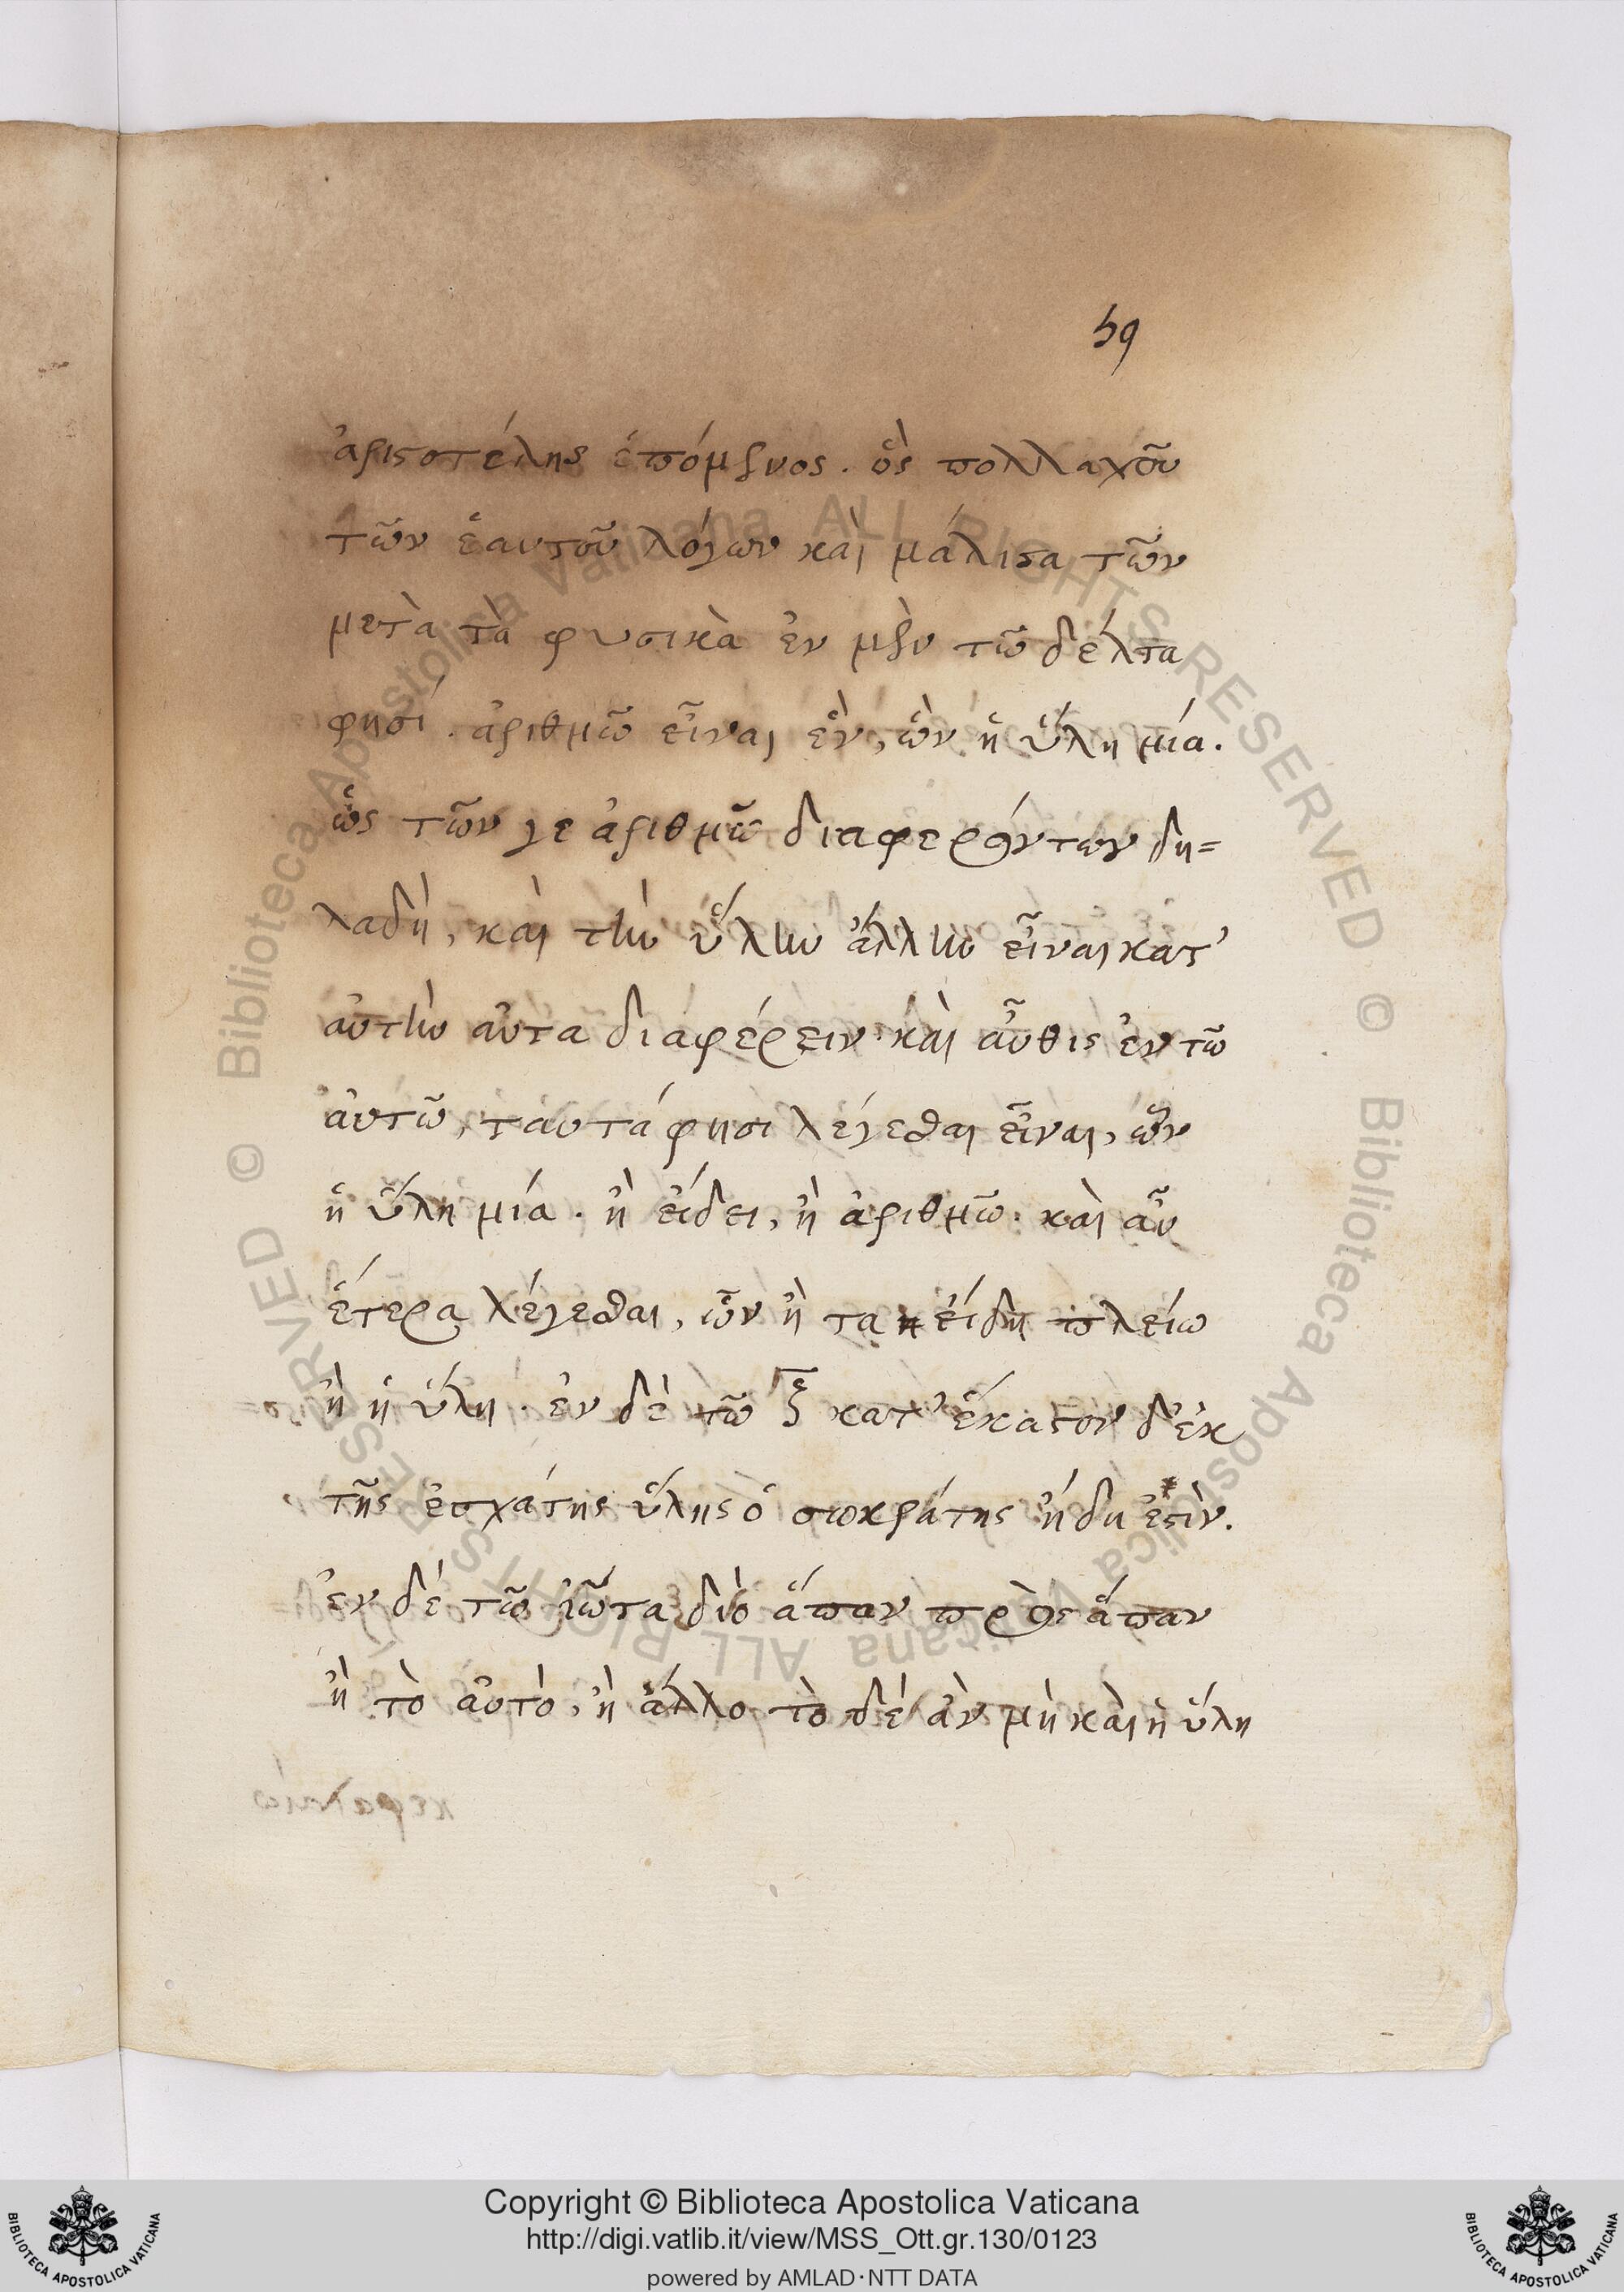 59
ἀριστοτέλης ἑπόμενος. ὃς πολλαχοῦ
τῶν ἑαυτοῦ λόγων καὶ μάλιστα τῶν
μετὰ τὰ φυσικὰ ἐν μὲν τῶ δέλτα
φησί. ἀριθμῶ εἶναι ἓν, ὧν ἡ ὕλη μία.
ὡς τῶν γε ἀριθμῶ διαφερόντων δη=
λαδὴ, καὶ τὴν ὕλην ἄλλην εἶναι κατ’
αὐτὴν αὐτα διαφέρειν. καὶ αὖθις ἐν τῶ
αὐτῶ, ταυτά φησι λέγεσθαι εἶναι, ὧν
ἡ ὕλη μία. ἢ εἴδει, ἢ ἀριθμῶ. καὶ αὖ
ἕτερα λέγεσθαι, ὧν ἢ τα εἴδη πλείω
ἢ ἡ ὕλη. ἐν δὲ τῶ ξ κατ’ ἕκαστον δ’ ἐκ
τῆς ἐσχάτης ὕλης ὁ σωκράτης ἤδη ἐστὶν.
ἐν δὲ τῶ ἰῶτα διὸ ἅπαν πρὸς ἅπαν
ἢ τὸ αὐτὸ, ἢ ἄλλο. τὸ δὲ ἀν μὴ καὶ ἡ ὕλη
Copyright © Biblioteca Apostolica Vaticana
http://digi.vatlib.it/view/MSS_Ott.gr.130/0123
powered by AMLAD·NTT DATA
BIBLIOTECA APOSTOLICA VATICANA
BIBLIOTECA APOSTOLICA VATICANA